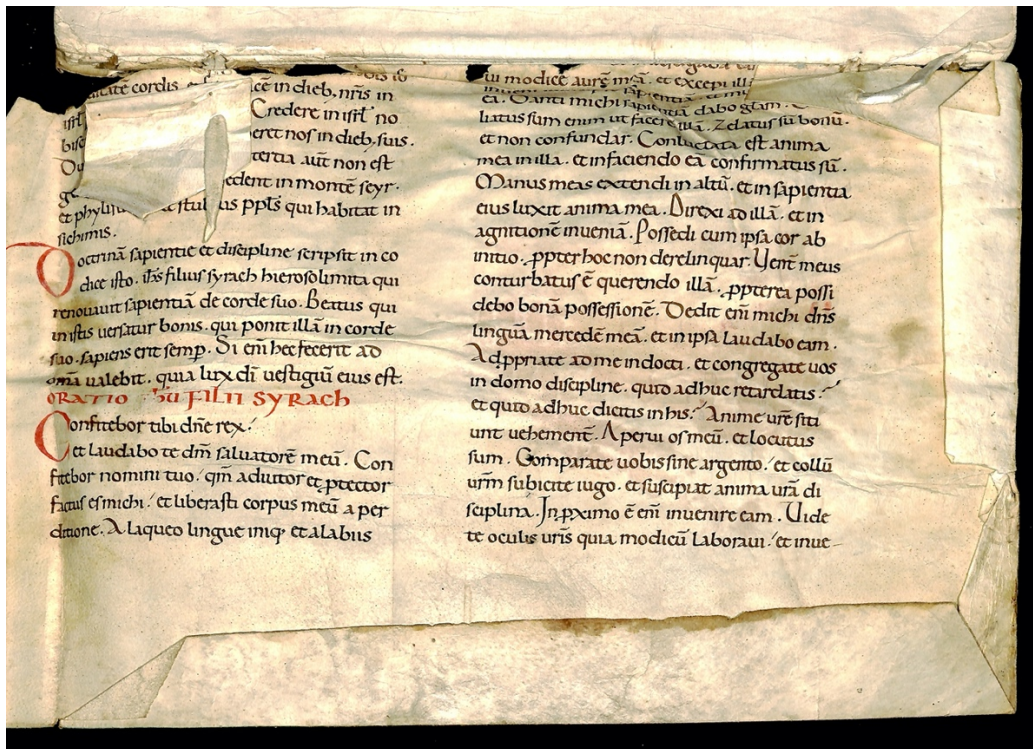 cordis
in dieb, nr̄is in
Credere in isrl̄ no
eret nos in dieb, suis.
tertia aut̄ non est
edent in montē seyr.
pp̄ls qui habitat in
sichimis.
Doctrinā sapientie et discipline scripsit in co
dice isto. ih̄s filius syrach hierosolimita qui
renovavit sapientiā de corde suo. Beatus qui
in istis versatur bonis. qui ponit illā in corde
suo. sapiens erit semp̄. Si eni̅ hec fecerit ad
omīa valebit. quia lux dī vestigiū eius est.
ORATIO ih̄u FILII SYRACH
Confitebor tibi dn̄e rex.
et laudabo te dm̄ salvatorē meū. Con
fitebor nomini tuo. qm̄ adiutor et ꝓtector
factus es michi. et liberasti corpus meū a per
ditione. A laqueo lingue iniq; et a labiis
ui modice aurē m̄ā. et excepi illā
ea. Danti michi sapientiā dabo gl̄am.
liatus sum enim ut facerē illā. Zelatus sū bonū.
et non confundar. Conluctata est anima
mea in illa. et in faciendo eā confirmatus sū.
Manus meas extendi in altū. et in sapientia
eius luxit anima mea. Direxi ad illā. et in
agnitionē inveniā. Possedi cum ipsa cor ab
initio. ꝓpter hoc non derelinquar. Vent̄ meus
conturbatus ē querendo illā. ꝓpterea possi
debo bonā possessionē. Dedit eni̅ michi dn̄s
linguā mercedē meā. et in ipsa laudabo eam.
Adꝓpriate ad me indocti. et congregate vos
in domo discipline. quid adhuc retardatis?
et quid adhuc dicitis in his? Anime vr̄e siti
unt vehement̄. Aperui os meū. et locutus
sum. Comparate vobis sine argento. et collū
vr̄m subicite iugo. et suscipiat anima vr̄a di
sciplinā. In ꝓximo ē eni̅ invenire eam. Vide
te oculis vr̄is quia modicū laboravi. et inve-